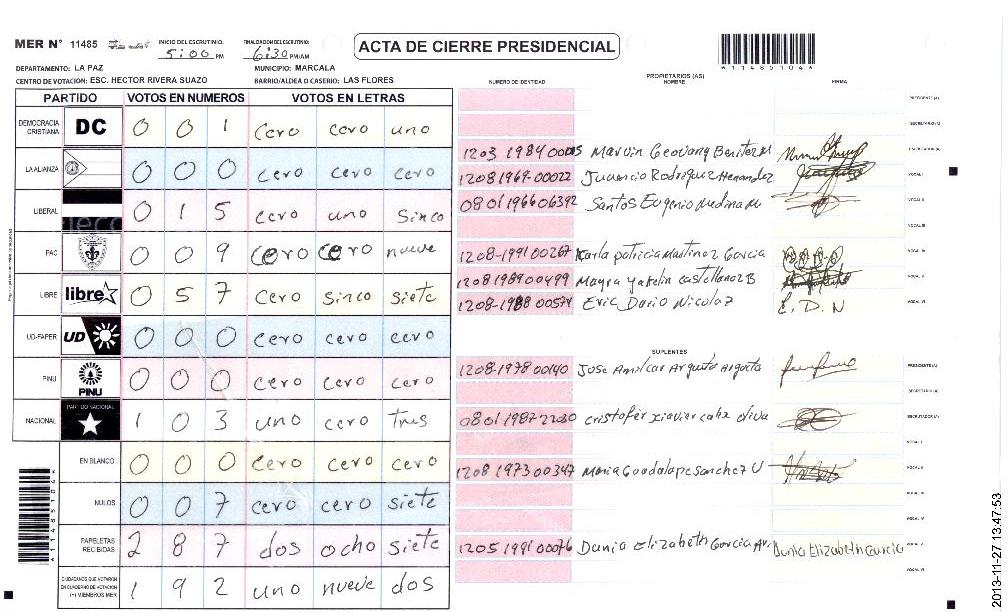 MER N° 11485
INICIO DEL ESCRUTINIO: 5:00 PM
FINALIZACION DEL ESCRUTINIO: 6:30 PM/AM
ACTA DE CIERRE PRESIDENCIAL
*11485104*
DEPARTAMENTO: LA PAZ
MUNICIPIO: MARCALA
CENTRO DE VOTACION: ESC. HECTOR RIVERA SUAZO
BARRIO/ALDEA O CASERIO: LAS FLORES
PARTIDO VOTOS EN NUMEROS VOTOS EN LETRAS
DEMOCRACIA CRISTIANA DC 0 0 1 cero cero uno
LA ALIANZA 0 0 0 cero cero cero
LIBERAL 0 1 5 cero uno Sinco
PAC 0 0 9 cero cero nueve
LIBRE libre 0 5 7 cero Sinco siete
UD-FAPER UD 0 0 0 cero cero cero
PINU PINU 0 0 0 cero cero cero
NACIONAL PARTIDO NACIONAL 1 0 3 uno cero tres
EN BLANCO 0 0 0 cero cero cero
NULOS 0 0 7 cero cero siete
PAPELETAS RECIBIDAS 2 8 7 dos ocho siete
CIUDADANOS QUE VOTARON EN CUADERNO DE VOTACION (+) MIEMBROS MER 1 9 2 uno nueve dos
NUMERO DE IDENTIDAD
PROPIETARIOS (AS)
NOMBRE
FIRMA
PRESIDENTE (A)
SECRETARIO (A)
1203 1984 Marvin Geovany Benitez M ESCRUTADOR (A)
1208 1969-00022 Juancio Rodriguez Hernandez VOCAL I
0801 1966 06392 Santos Eugenio Medina M VOCAL II
VOCAL III
1208-1991 00267 Karla patricia Martinez Garcia VOCAL IV
1208 1989 00499 Mayra yakelin castellanoz B VOCAL V
1208-1988 00574 Eric Dario Nicolaz E. D. N VOCAL VI
SUPLENTES
1208-1978-00140 Jose Amilcar Argueta Argueta PRESIDENTE (A)
SECRETARIO (A)
0801 1987 2230 cristofer xiavier oliva ESCRUTADOR (A)
VOCAL I
1208 1973 00347 Maria Guadalape Sanchez U VOCAL II
VOCAL III
VOCAL IV
1205 1991 00076 Dania Elizabeth Garcia Av Dania Elizabeth Garcia VOCAL V
VOCAL VI
*11485104*
2013-11-27 13:47:53